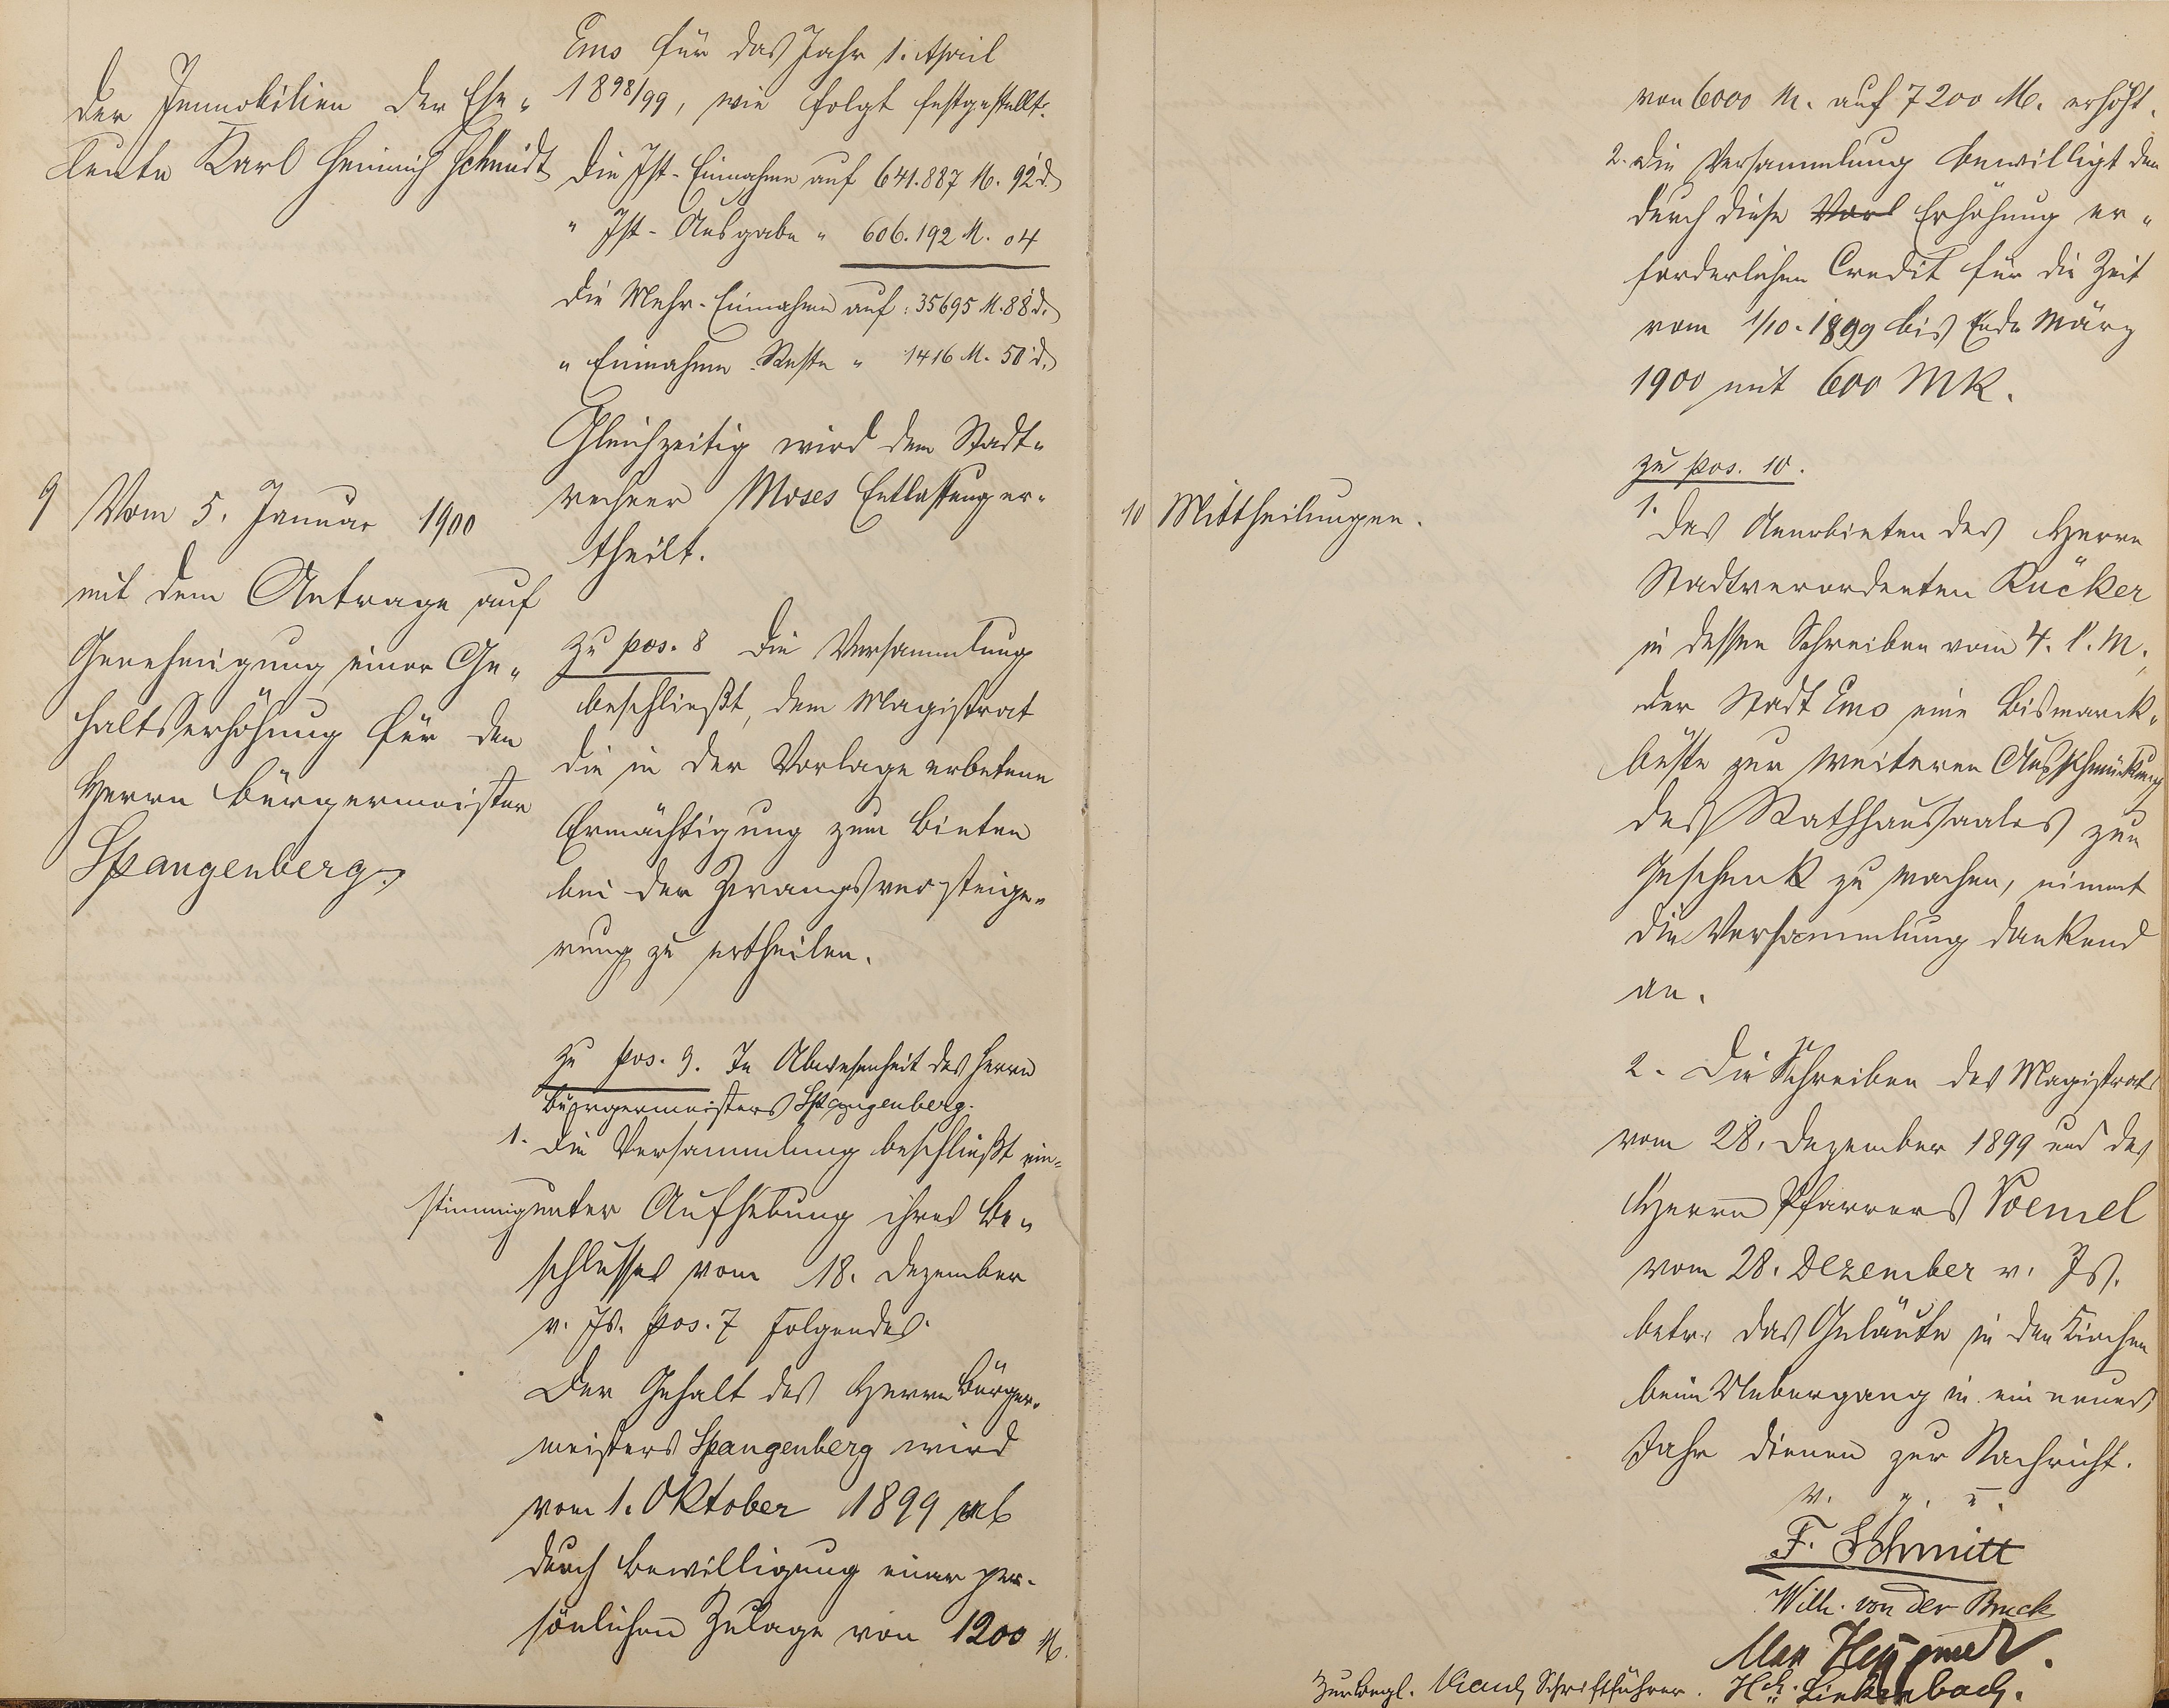 der Immobilien der Ehe-
leute Karl Heinrich Schmidt
9 Vom 5. Januar 1900
mit dem Antrage auf
Genehmigung einer Ge-
haltserhöhung für den
Herrn Bürgermeister
Spangenberg.
Ems für das Jahr 1. April
1898/99, wie folgt festgestellt:
die Ist-Einnahme auf 641.887 M. 92 d.
" Ist-Ausgabe " 606.192 M. 04
die Mehr-Einnahme auf: 35695 M. 88 d.
" Einnahme-Reste " 1416 M. 50 d.
Gleichzeitig wird dem Stadt-
rechner Moses Entlastung er-
theilt.
zu pos. 8 Die Versammlung
beschließt, dem Magistrat
die in der Vorlage erbetene
Ermächtigung zum Bieten
bei der Zwangsversteige-
rung zu ertheilen.
zu pos. 9. In Abwesenheit des Herrn
Bürgermeisters Spangenberg.
1. Die Versammlung beschließt ein-
stimmig unter Aufhebung ihres Be-
schlusses vom 18. Dezember
v. Js. pos. 7 Folgendes:
Der Gehalt des Herrn Bürger-
meisters Spangenberg wird
vom 1. Oktober 1899 ab
durch Bewilligung einer per-
sönlichen Zulage von 1200 M.
10 Mittheilungen.
von 6000 M. auf 7200 M. erhöht.
2. Die Versammlung bewilligt den
durch diese Vorl Erhöhung er-
forderlichen Credit für die Zeit
vom 1/10. 1899 bis Ende März
1900 mit 600 MK.
zu pos. 10.
1.
Das Anerbieten des Herrn
Stadtverordneten Rücker
in dessen Schreiben vom 4. l. M.,
der Stadt Ems eine Bismarck-
büste zur weiteren Ausschmückung
des Rathhaussaales zum
Geschenk zu machen, nimmt
die Versammlung dankend
an.
2. Die Schreiben des Magistrats
vom 28. Dezember 1899 und des
Herrn Pfarrers Voemel
vom 28. Dezember v. Js.
betr. das Geläute in den Kirchen
beim Uebergang in ein neues
Jahr dienen zur Nachricht.
v. g. u.
F. Schmitt
Wilh. von der Bruck
Max
Zur Begl. Schriftführer. Hch. Linkenbach.